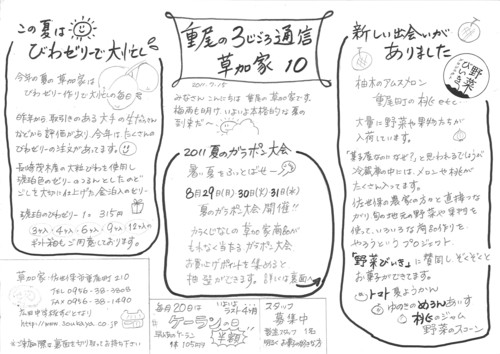 重尾の3じごろ通信
草加家 10
2011.7.15
みなさんこんにちは 重尾の草加家です。
梅雨も明け いよいよ本格的な夏の
到来だ〜
この夏は
びわゼリーで大忙し
今年の夏の草加家は
びわゼリー作りで大忙しの毎日
昨年から取引きのある大手の
などから評価があり 今年は、たくさんの
びわゼリーの注文があってます。
長崎茂木産の大粒びわを使用し
琥珀色のゼリーの
ごしを大切に仕上げた金治入のゼリー
琥珀のびわゼリー 1ヶ 315円
3ヶ入・4ヶ入・6ヶ入・9ヶ入・12ヶ入の
ギフト箱もご用意しております。
2011 夏のガラポン大会
暑い夏をふっとばせ〜
8月29日(月)30日(火)31日(水)
夏のガラポン大会 開催!!
からくじなしの 草加家商品が
もれなく当たる ガラポン大会
お買上げポイントを集めると
抽選ができます。詳しくは裏面へ
新しい出会いが
ありました
野菜びいき
柚木のアムスメロン
重尾町の桃 etc.
大量に野菜や果物たちが
入荷しています。
「菓子屋なのになぜ?」と思われるでしょうが
冷蔵庫の中には、メロンや桃が
たくさん入ってます。
佐世保の農家の方々と直接つな
がり旬の地元の野菜や果物を
使って、いろいろな商品作りを
やろうというプロジェクト
「野菜びいき」に賛同し ぞくぞくと
お菓子ができてます。
トマト夏ようかん
ゆのきのめろんあいす
桃のジャム
野菜のスコーン
草加家:佐世保市重尾町210
TEL 0956-38-3808
FAX 0956-38-1490
左田中草加家のひとり
http://www.soukaya.co.jp
毎月20日は
ケーランの日
半額
スタッフ
募集中
製造スタッフ 1名
明るく、お菓子の好きな方